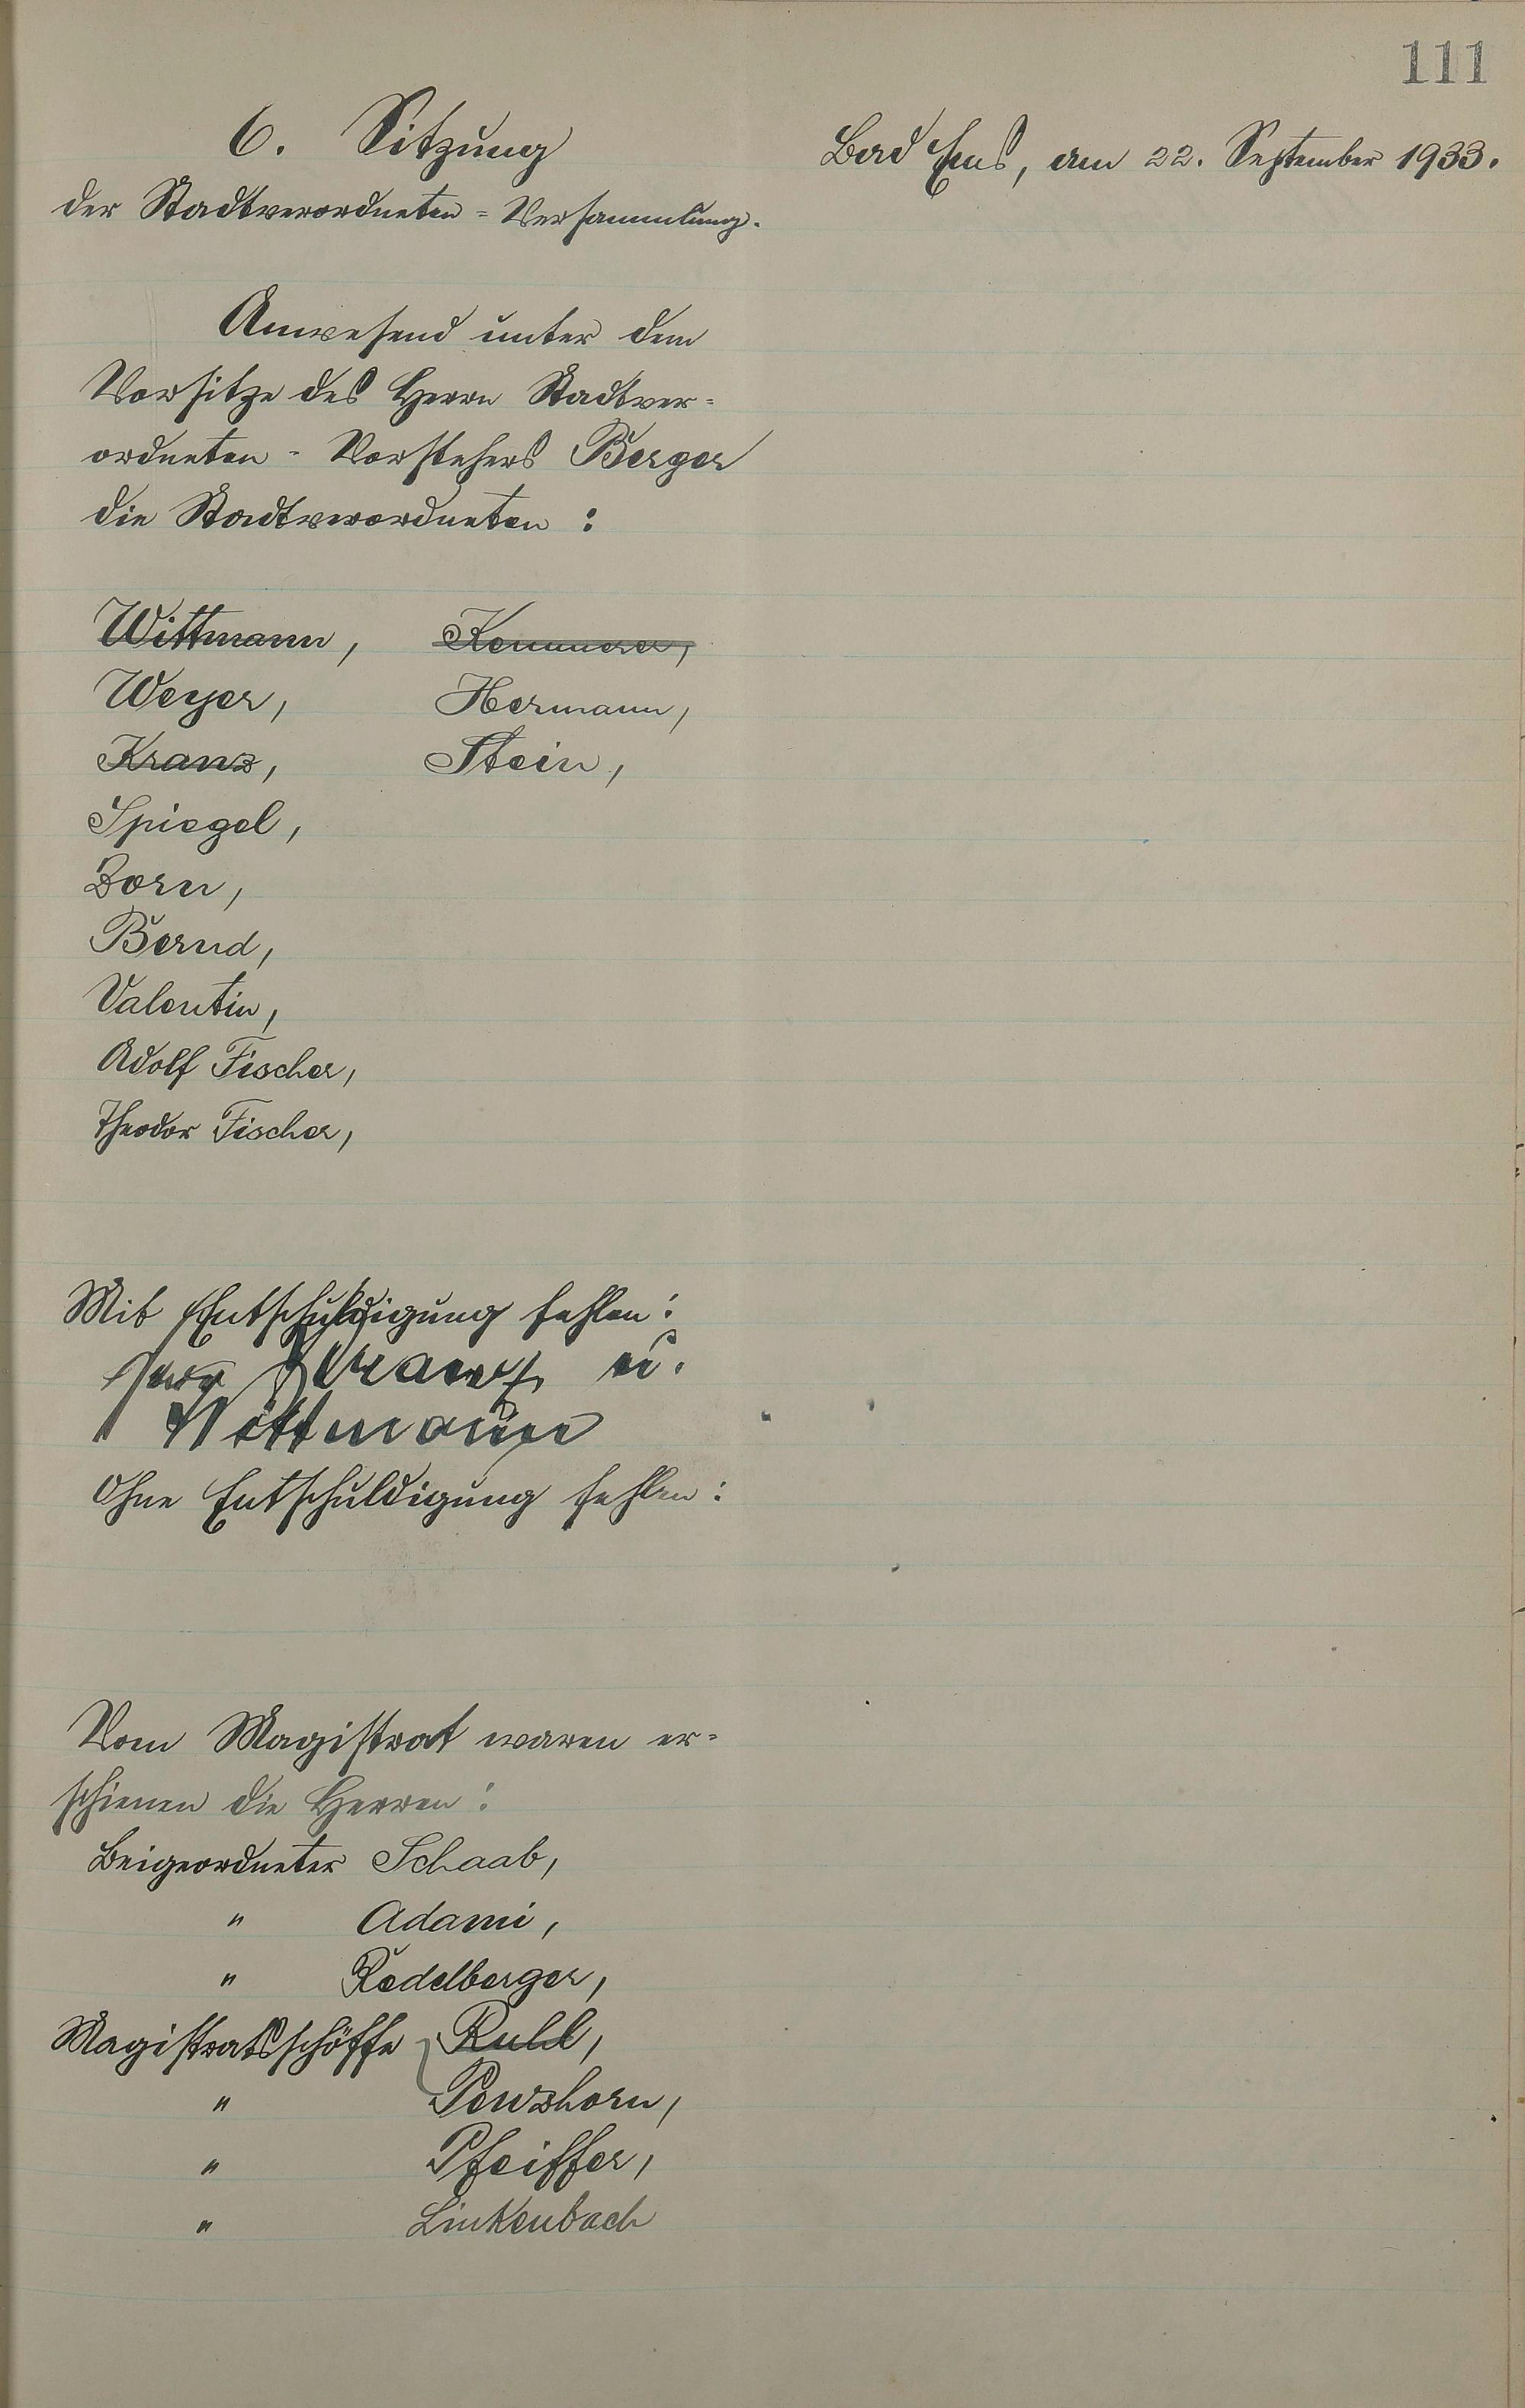 111
6. Sitzung
der Stadtverordneten-Versammlung.
Bad Ems, am 22. September 1933.
Anwesend unter dem
Vorsitze des Herrn Stadtver-
ordneten-Vorstehers Berger
die Stadtverordneten:
Wittmann, Kemmerer,
Weyer, Hermann,
Kranz, Stein,
Spiegel,
Born,
Bernd,
Valentin,
Adolf Fischer,
Theodor Fischer,
Mit Entschuldigung fehlen:
Kranz u.
Wittmann
Ohne Entschuldigung fehlen:
Vom Magistrat waren er-
schienen die Herren:
Beigeordneter Schaab,
" Adami,
" Redelberger,
Magistratsschöffe Rull,
" Penzhorn,
" Pfeiffer,
" Linkenbach